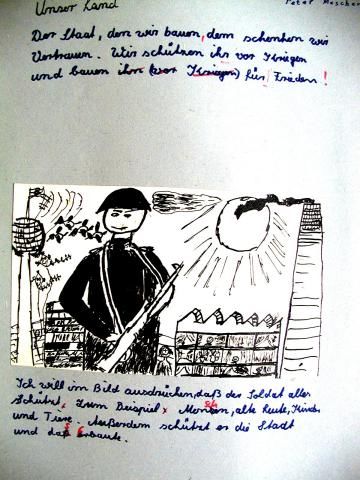 Unser Land
Peter Mescher
Der Staat, den wir bauen, dem schenken wir
Vertrauen. Wir schützen ihn vor Kriegen
und bauen ihn (vor Kriegen) für Frieden!
Ich will im Bild ausdrücken, daß der Soldat alles
schützt, zum Beispiel, Menschen, alte Leute, Kinder
und Tiere. Außerdem schützt er die Stadt
und das Erbaute.